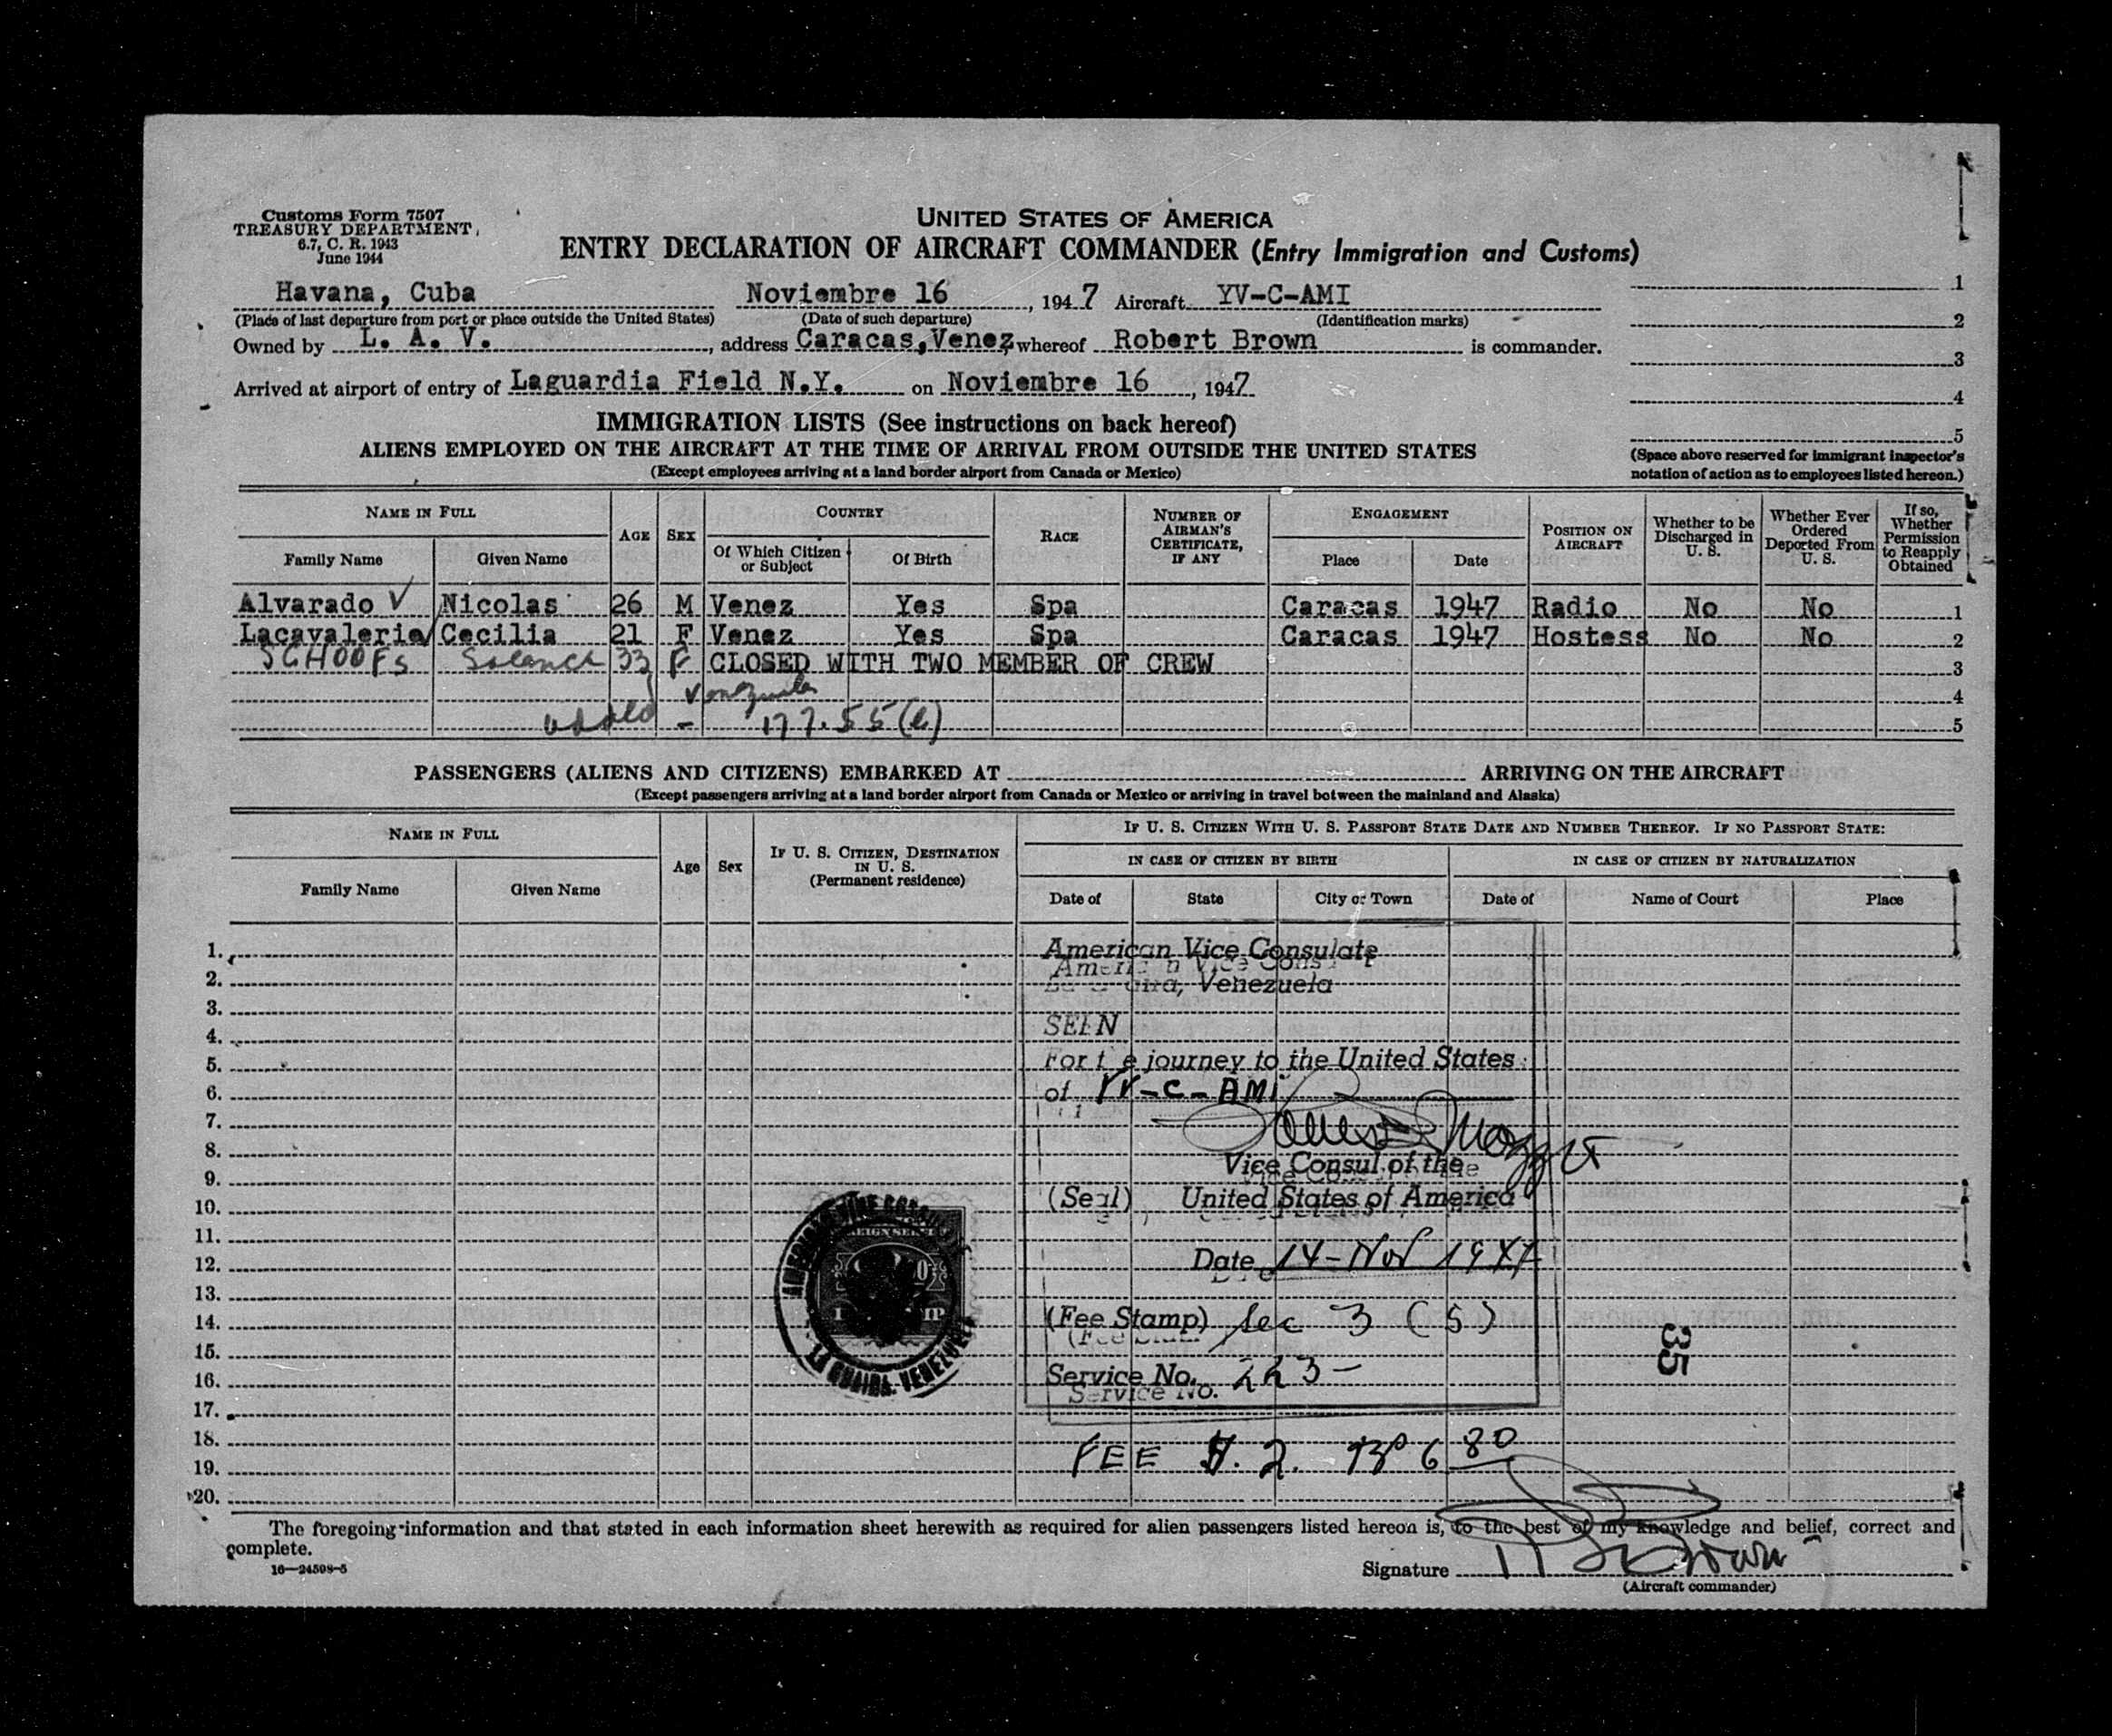 Customs Form 7507
TREASURY DEPARTMENT
6.7, C. R. 1943
June 1944
UNITED STATES OF AMERICA
ENTRY DECLARATION OF AIRCRAFT COMMANDER (Entry Immigration and Customs)
Havana, Cuba Noviembre 16, 1947 Aircraft YV-C-AMI
(Place of last departure from port or place outside the United States) (Date of such departure) (Identification marks)
Owned by L. A. V., address Caracas, Venez, whereof Robert Brown is commander.
Arrived at airport of entry of Laguardia Field N.Y. on Noviembre 16, 1947
1
2
3
4
5
(Space above reserved for immigrant inspector's
notation of action as to employees listed hereon.)
IMMIGRATION LISTS (See instructions on back hereof)
ALIENS EMPLOYED ON THE AIRCRAFT AT THE TIME OF ARRIVAL FROM OUTSIDE THE UNITED STATES
(Except employees arriving at a land border airport from Canada or Mexico)
NAME IN FULL
Family Name Given Name
AGE
SEX
COUNTRY
Of Which Citizen or Subject
Of Birth
RACE
NUMBER OF AIRMAN'S CERTIFICATE, IF ANY
ENGAGEMENT
Place Date
POSITION ON AIRCRAFT
Whether to be Discharged in U. S.
Whether Ever Ordered Deported From U. S.
If so, Whether Permission to Reapply Obtained
Alvarado ✓ Nicolas 26 M Venez Yes Spa Caracas 1947 Radio No No 1
Lacavalerie ✓ Cecilia 21 F Venez Yes Spa Caracas 1947 Hostess No No 2
SCHOOFS 33 F CLOSED WITH TWO MEMBER OF CREW 3
Venezuela 4
added - 177.55(b) 5
PASSENGERS (ALIENS AND CITIZENS) EMBARKED AT ARRIVING ON THE AIRCRAFT
(Except passengers arriving at a land border airport from Canada or Mexico or arriving in travel between the mainland and Alaska)
NAME IN FULL
Family Name Given Name
Age
Sex
IF U. S. CITIZEN, DESTINATION IN U. S.
(Permanent residence)
IF U. S. CITIZEN WITH U. S. PASSPORT STATE DATE AND NUMBER THEREOF. IF NO PASSPORT STATE:
IN CASE OF CITIZEN BY BIRTH IN CASE OF CITIZEN BY NATURALIZATION
Date of State City or Town Date of Name of Court Place
1.
2.
3.
4.
5.
6.
7.
8.
9.
10.
11.
12.
13.
14.
15.
16.
17.
18.
19.
20.
American Vice Consulate
La Guaira, Venezuela
SEEN
For the journey to the United States
of YV-C-AMI
Vice Consul of the
(Seal) United States of America
Date 14-Nov 1947
(Fee Stamp) Sec 3 (5)
Service No. 223-
FEE $. 2. 6 80
AMERICAN VICE CONSULATE
LA GUAIRA, VENEZUELA
35
The foregoing information and that stated in each information sheet herewith as required for alien passengers listed hereon is, to the best of my knowledge and belief, correct and
complete.
16—24598-5
Signature R Brown
(Aircraft commander)